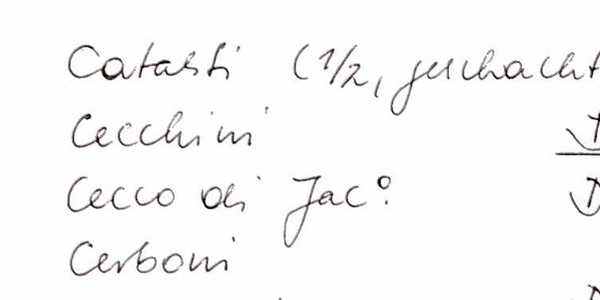 Catasti (1/2, geschacht
Cecchini
Cecco di Jac°.
Cerboni